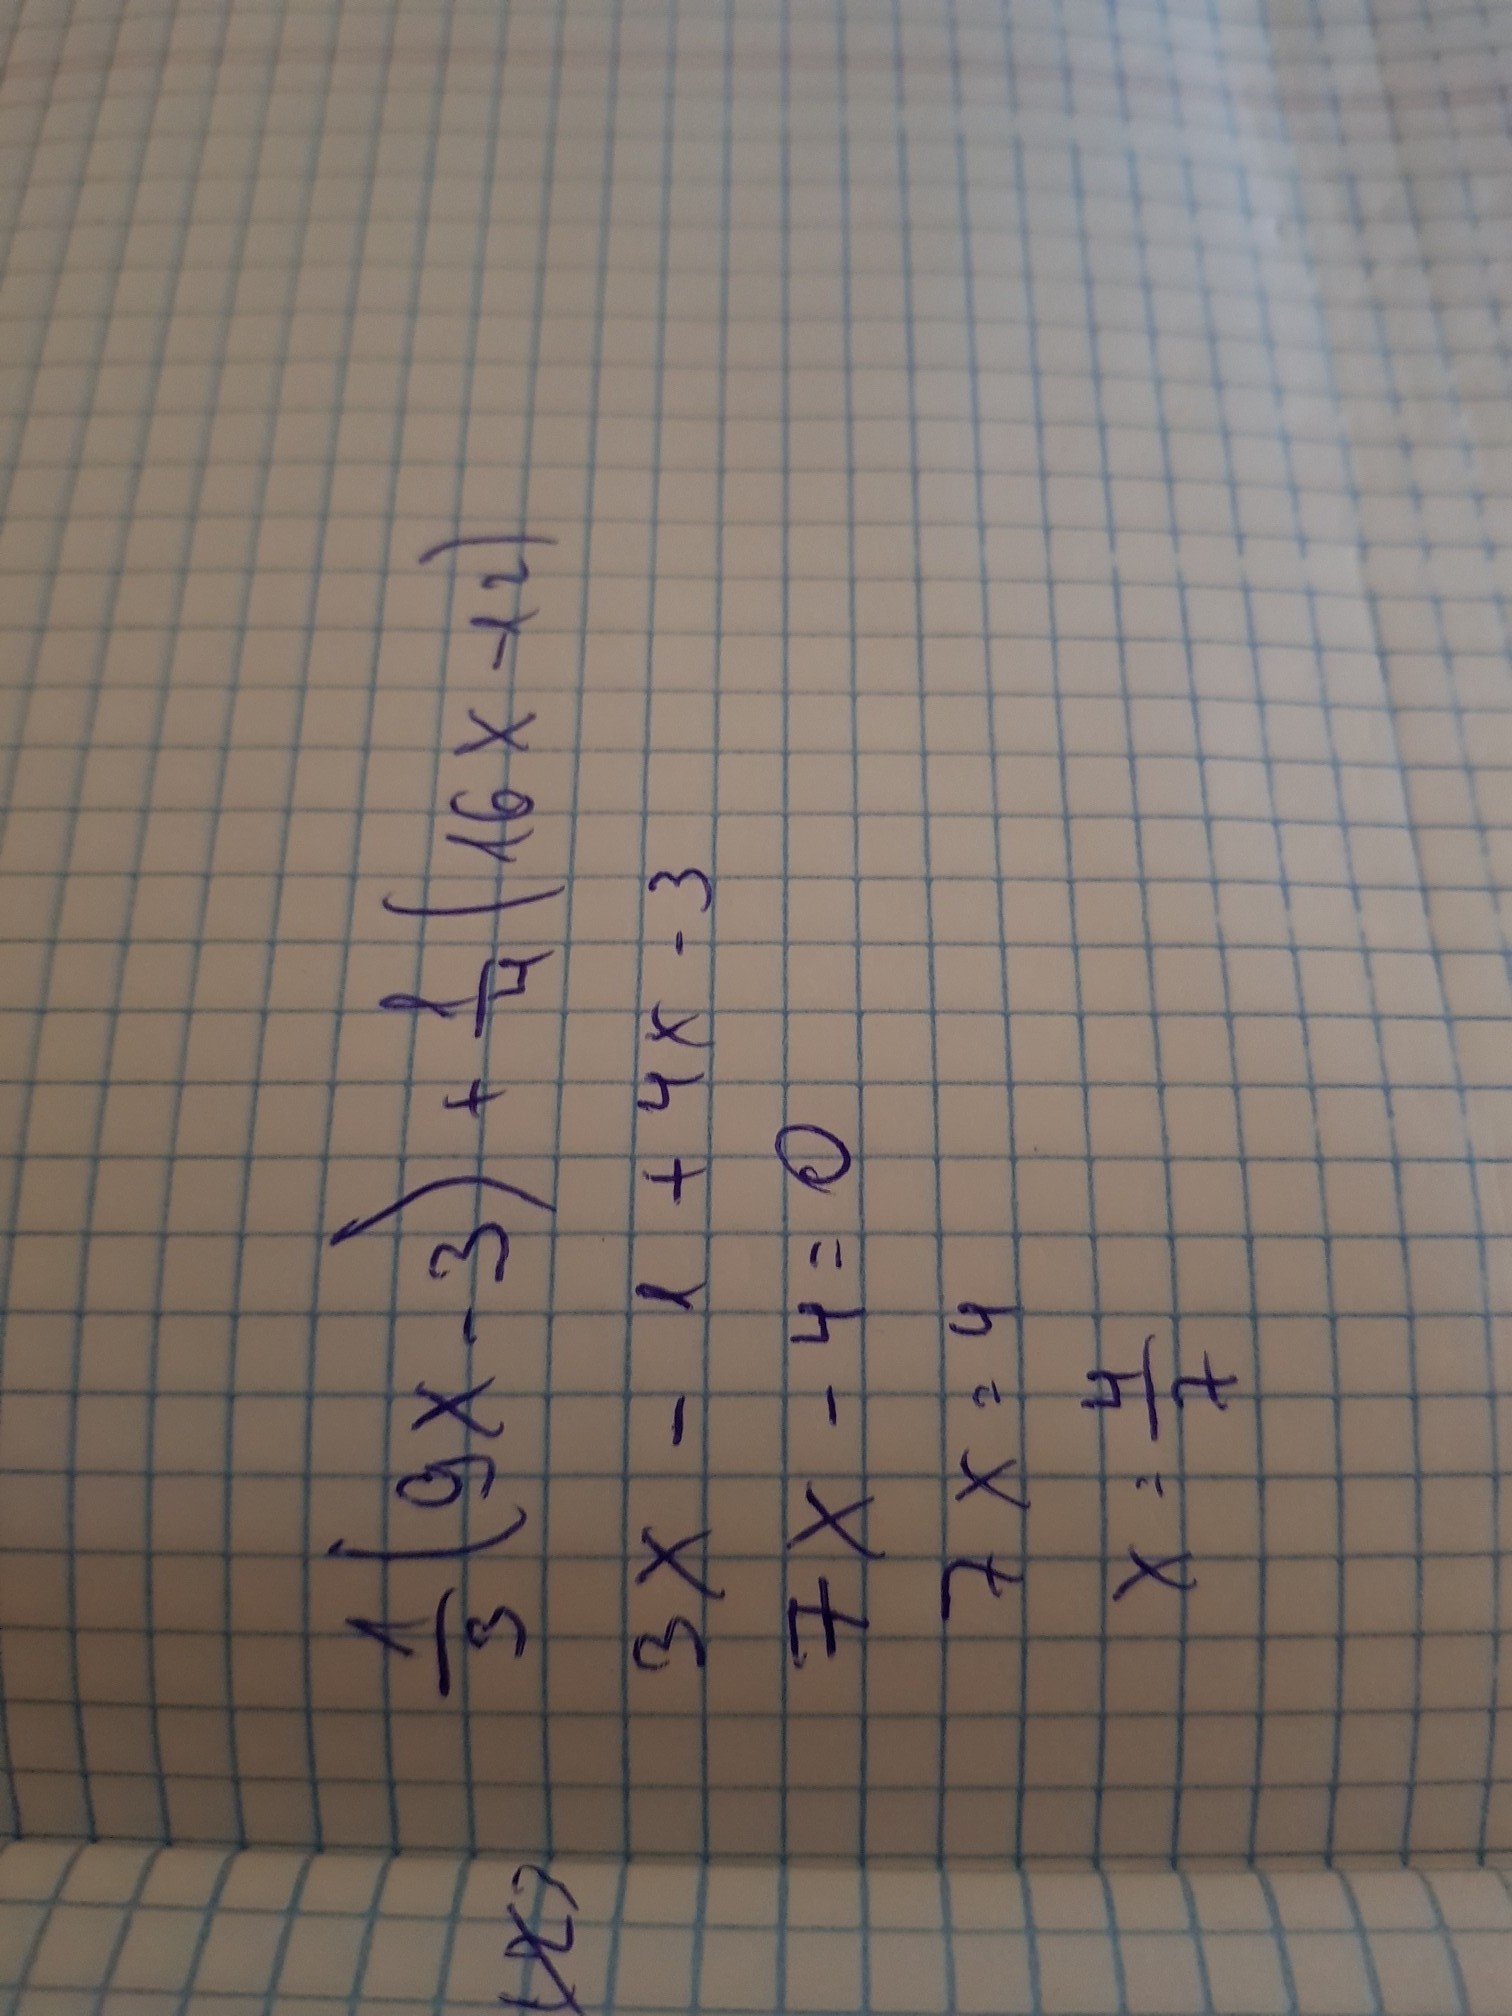 1/3 (9x - 3) + 1/4 (16x - 12)
3x - 1 + 4x - 3
7x - 4 = 0
7x = 4
x = 4/7